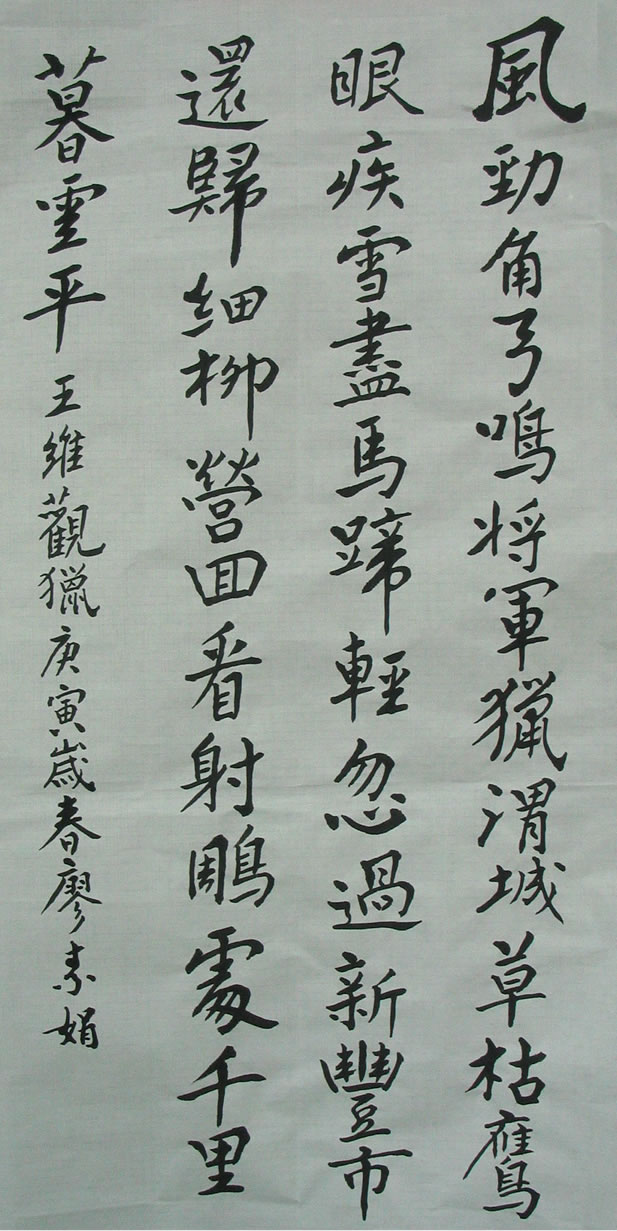 風勁角弓鳴将軍獵渭城草枯鷹
眼疾雪盡馬蹄輕忽過新豐市
還歸細柳營回看射鵰處千里
暮雲平 王維觀獵庚寅歲春廖素娟